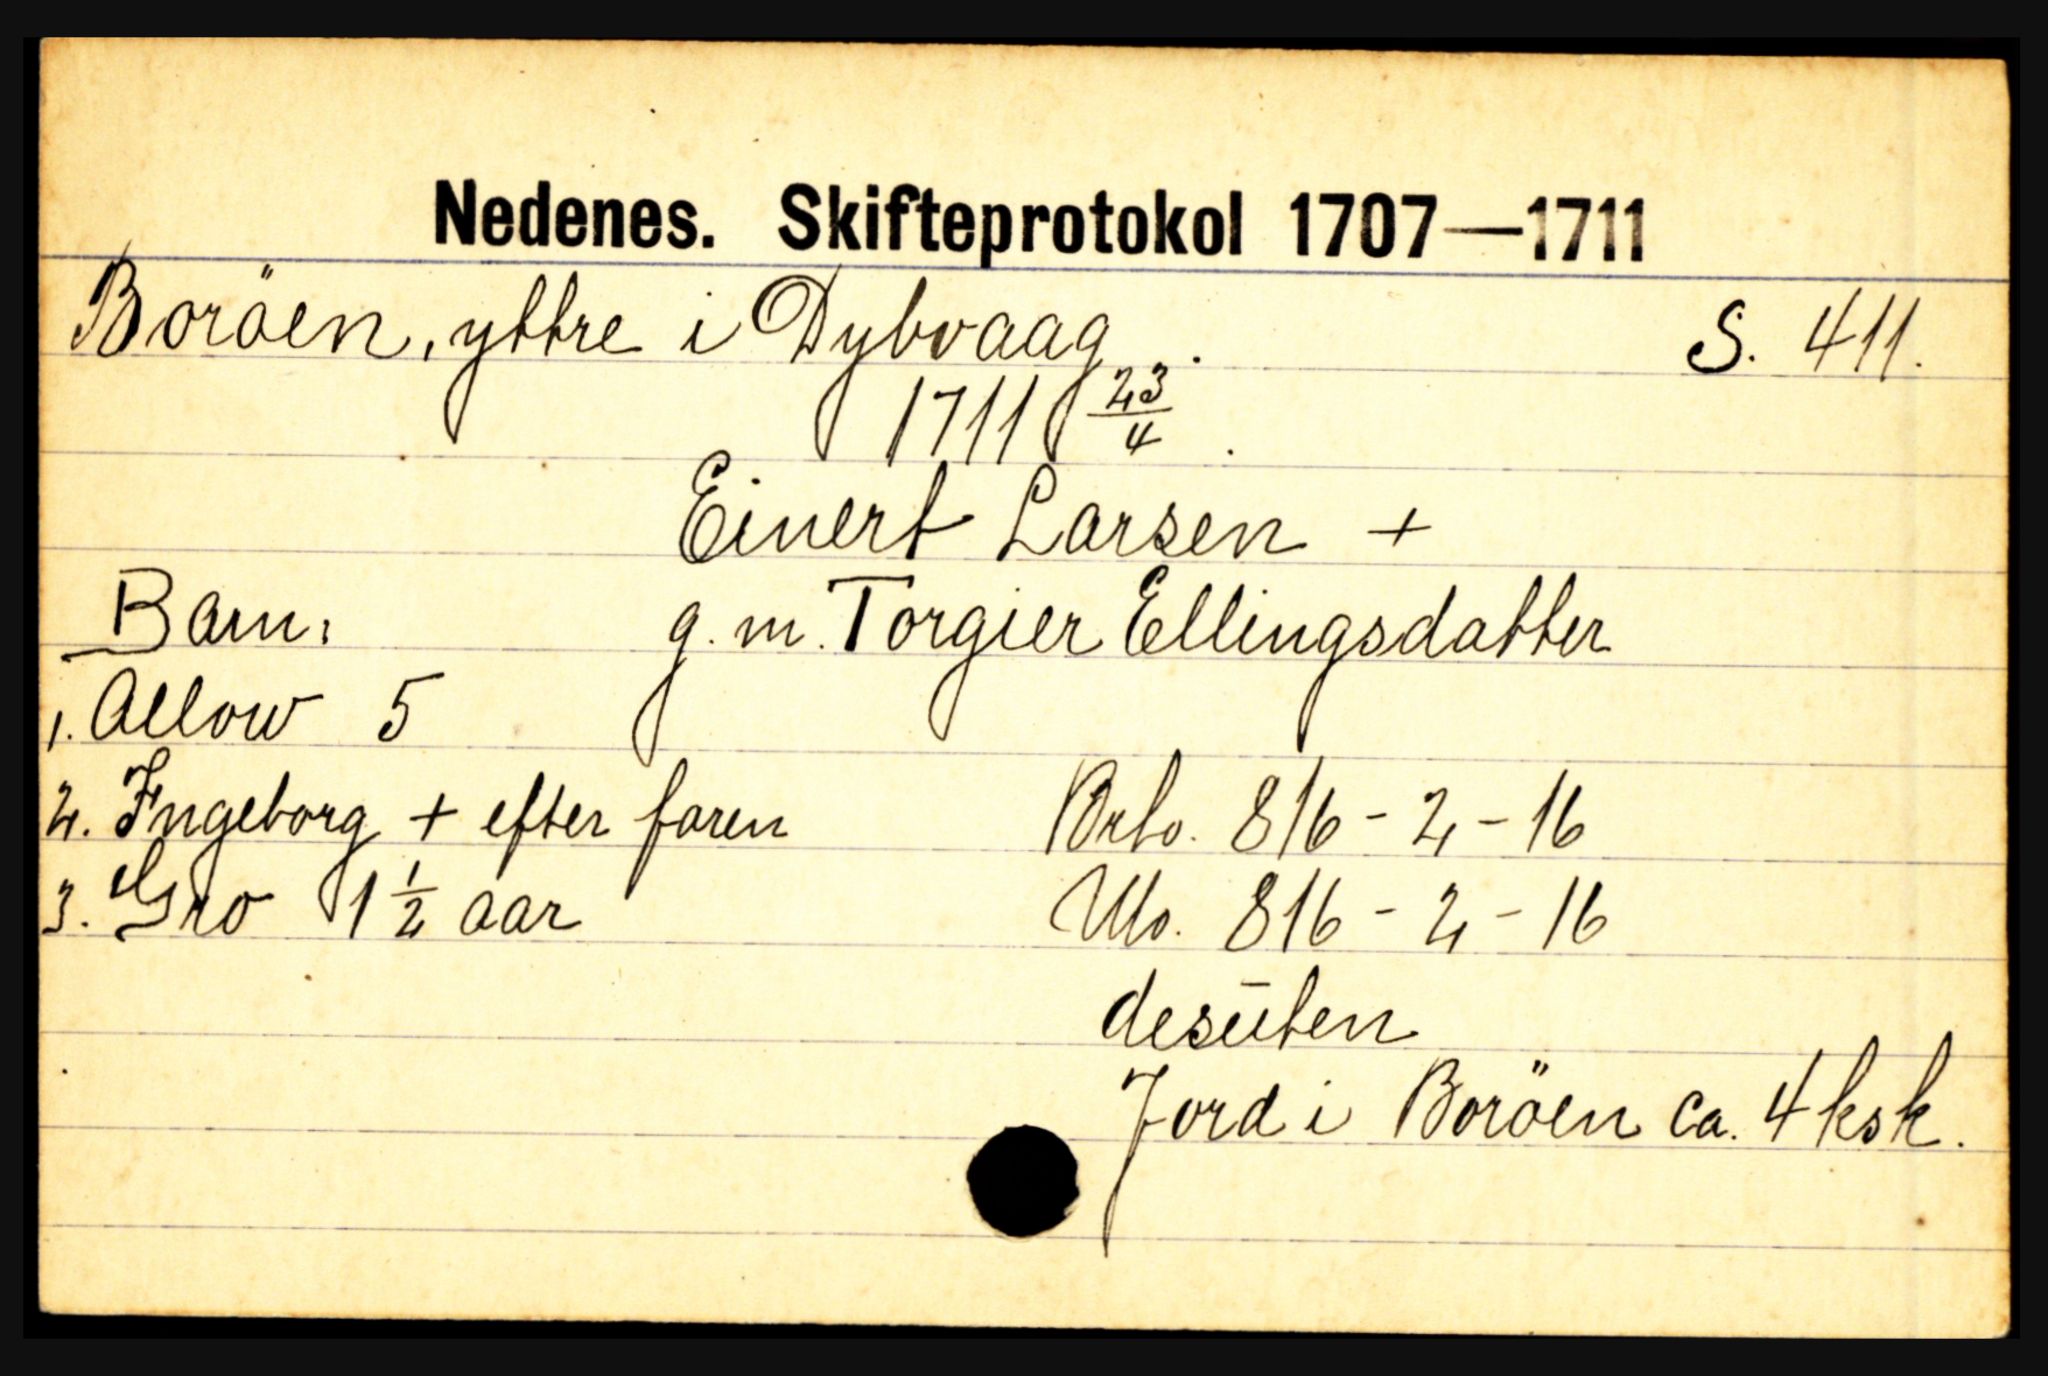 Nedenes. Skifteprotokol 1707—1711
Boröen, yttre i Dybvaag. S. 411.
1711 23/4.
Einert Larsen +
Barn: g. m. Torgier Ellingsdatter
1. Allow 5
2. Ingeborg + efter faren Brto. 816 - 2 - 16
3. Gro 1 1/2 aar Nto. 816 - 2 - 16
desūten
Jord i Boröen ca. 4 ksk.